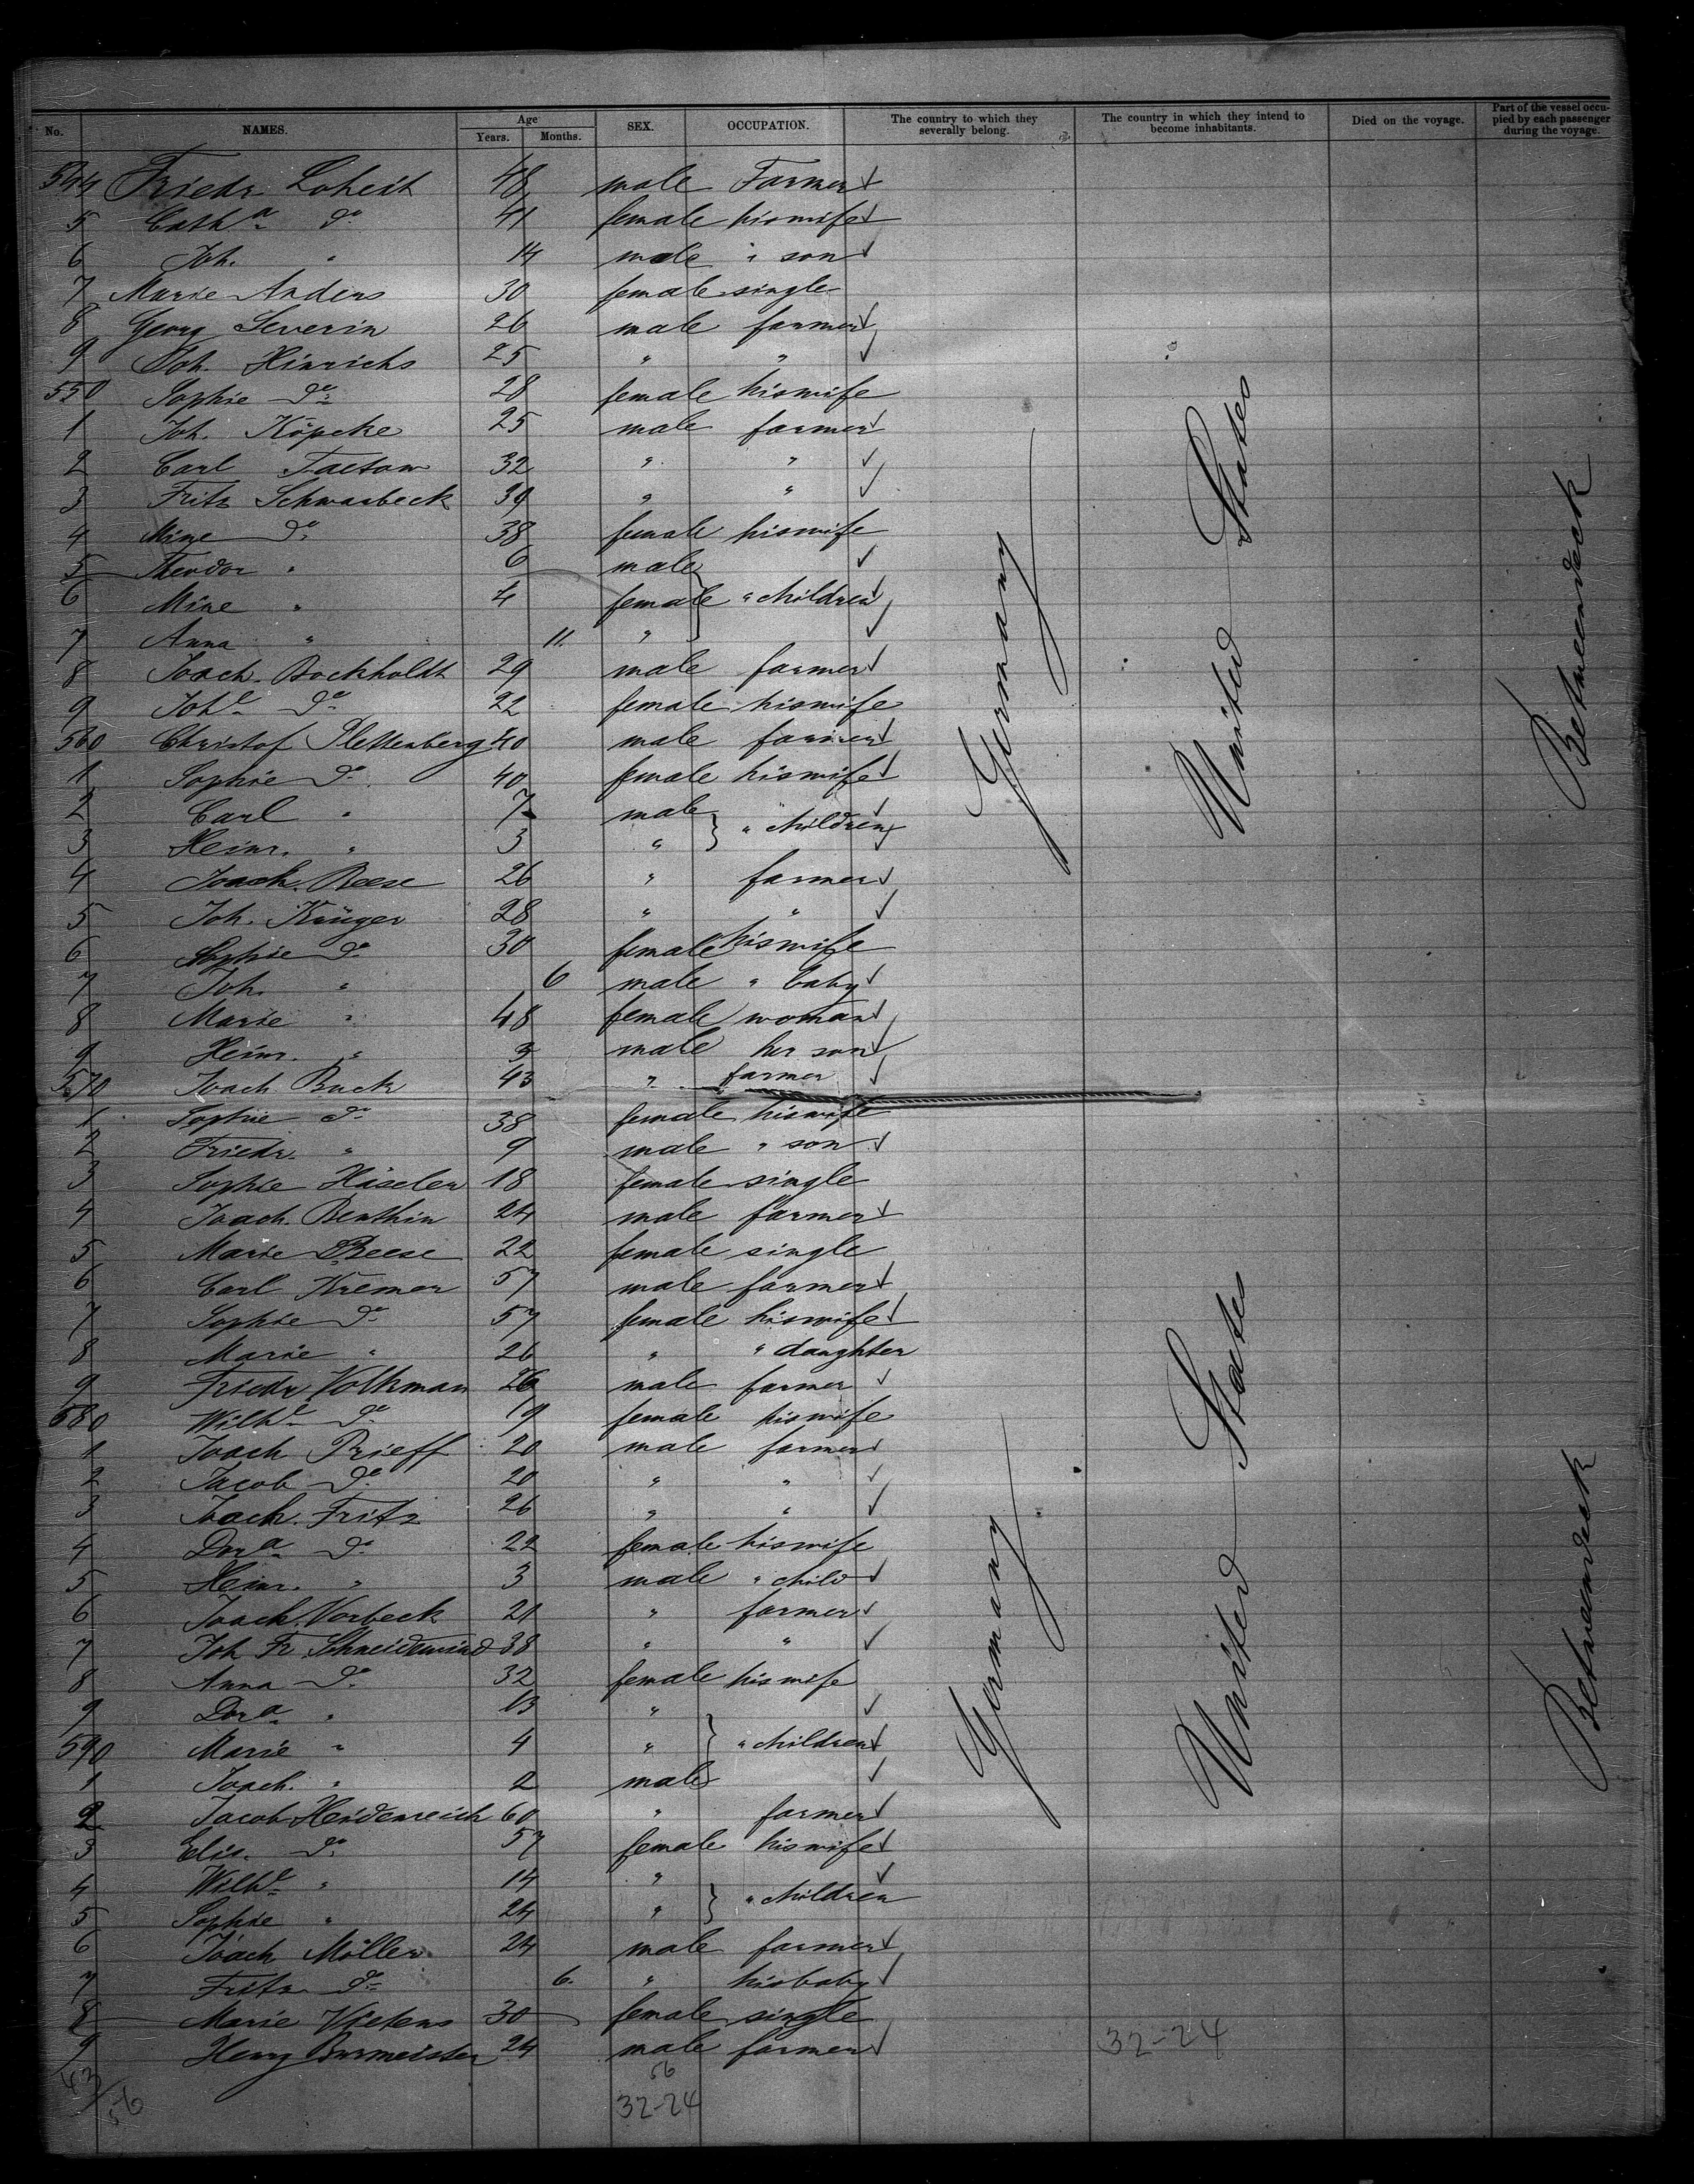 No. NAMES. Age Years. Months. SEX. OCCUPATION. The country to which they severally belong. The country in which they intend to become inhabitants. Died on the voyage. Part of the vessel occupied by each passenger during the voyage.
544 Friedr. Loheit 48 male Farmer
5 Cath.a do 41 female his wife
6 Joh. " 14 male " son
7 Marie Anders 30 female single
8 Georg Severin 26 male farmer
9 Joh. Hinrichs 25 " "
550 Sophie do 28 female his wife
1 Joh. Köpcke 25 male farmer
2 Carl Faetow 32 " "
3 Fritz Schwarbeck 39 " "
4 Mine do 38 female his wife
5 Theodor " 6 male
6 Mine " 4 female " children
7 Anna " 11. "
8 Joach. Bockholdt 29 male farmer
9 Joh.e do 22 female his wife
560 Christof Plettenberg 40 male farmer
1 Sophie do 40 female his wife
2 Carl " 7 male
3 Heinr. " 3 " " children
4 Joach. Reese 26 " farmer
5 Joh. Krüger 28 " "
6 Sophie do 30 female his wife
7 Joh. " 6 male " baby
8 Marie " 48 female woman
9 Heinr. " 3 male her son
570 Joach. Buck 43 " farmer
1 Sophie do 38 female his wife
2 Friedr. " 9 male " son
3 Sophie Häseler 18 female single
4 Joach. Benthin 24 male farmer
5 Marie Reese 22 female single
6 Carl Kremer 57 male farmer
7 Sophie do 57 female his wife
8 Marie " 26 " " daughter
9 Friedr Volkman 26 male farmer
580 Wilh.e do 19 female his wife
1 Joach Prieff 20 male farmer
2 Jacob do 20 " "
3 Joach. Fritz 26 " "
4 Dor.a do 22 female his wife
5 Heinr. " 3 male " child
6 Joach. Vorbeck 21 " farmer
7 Joh Fr. Schneidewind 38 " "
8 Anna do 32 female his wife
9 Dor.a " 13 "
590 Marie " 4 " " children
1 Joach. " 2 male
2 Jacob Heidenreich 60 " farmer
3 Elis. do 57 female his wife
4 Wilh.e " 14 "
5 Sophie " 24 " " children
6 Joach Möller 24 male farmer
7 Fritz do 6. " his baby
8 Marie Vietens 30 female single
9 Henry Burmeister 24 male farmer
Germany
United States
Betweendeck
Germany
United States
Betweendeck
32-24
43/56
56
32-24